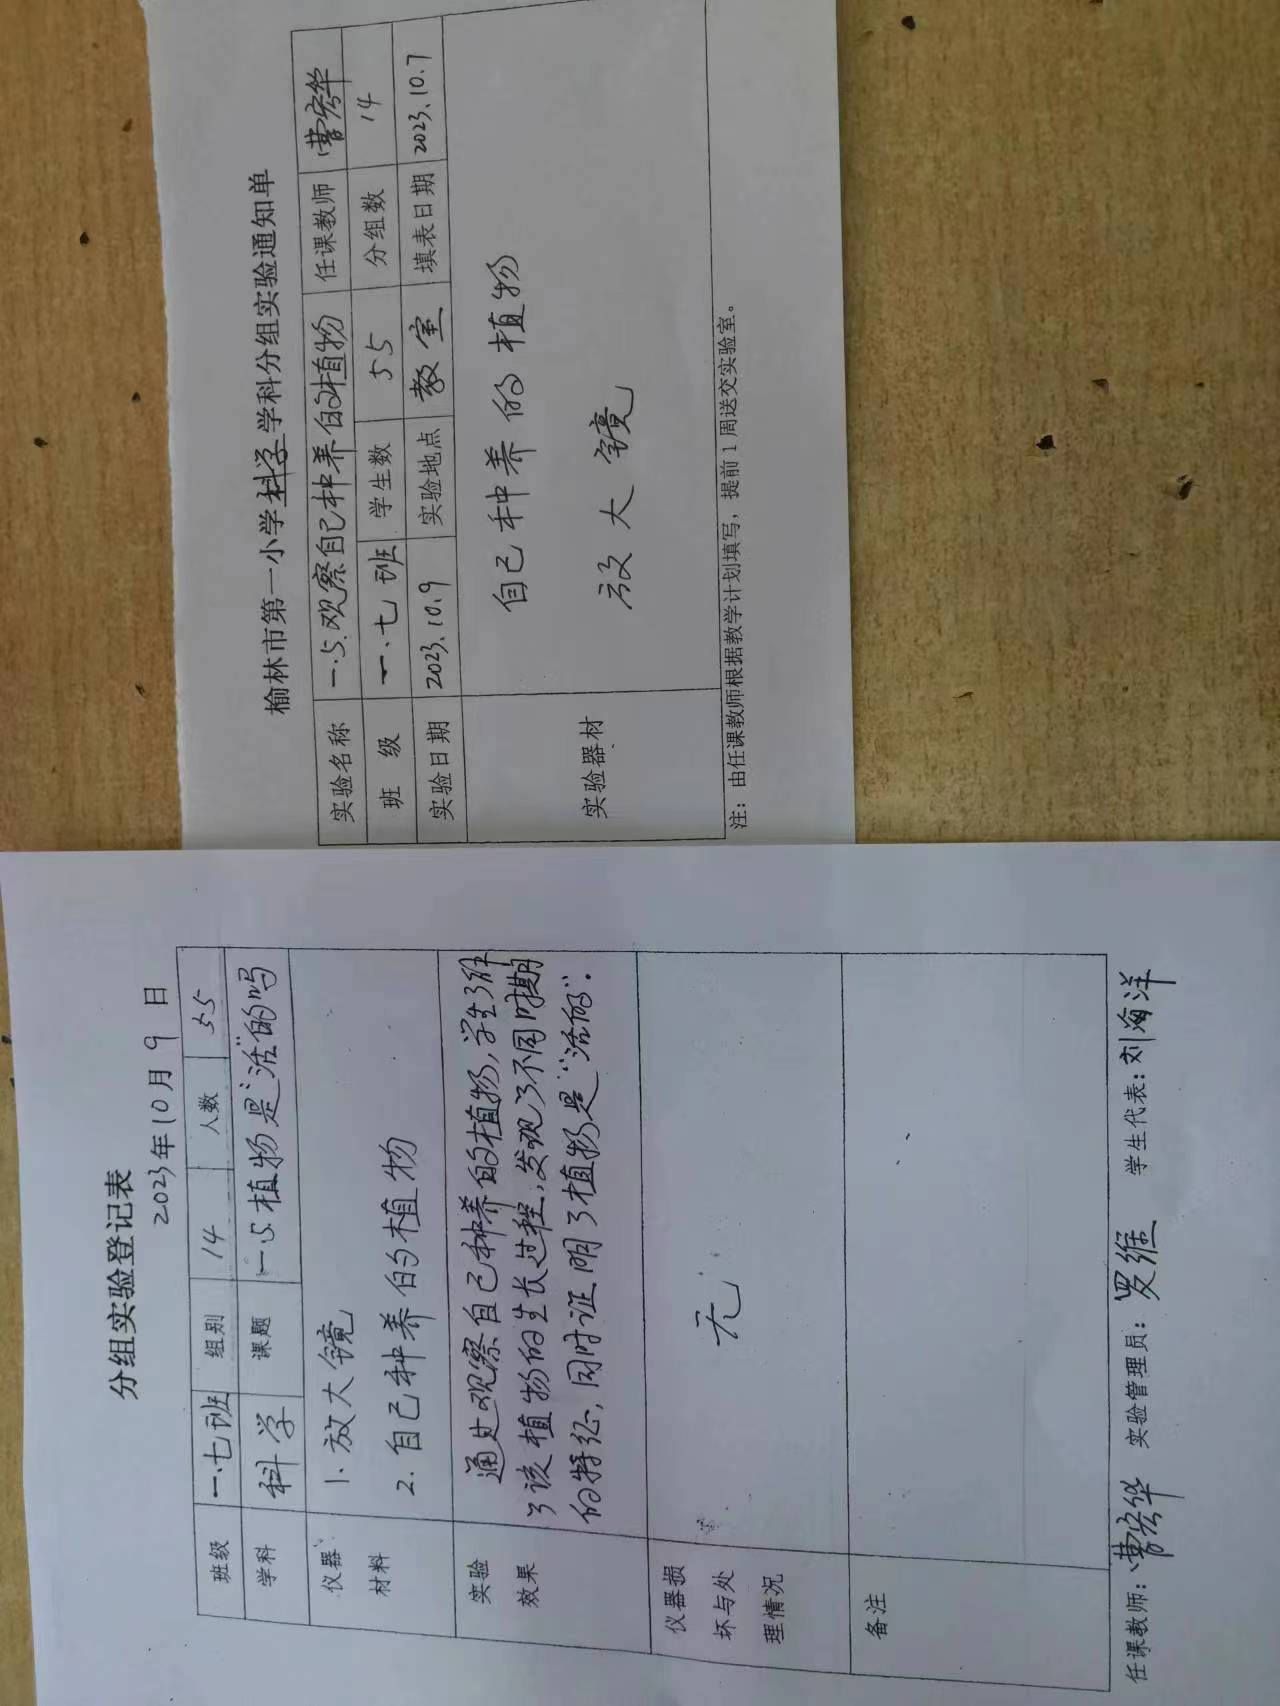 分组实验登记表
2023年10月9日
班级 一.七班 组别 14 人数 55
学科 科学 课题 一.5.植物是“活”的吗
仪器材料 1. 放大镜
2. 自己种养的植物
实验效果 通过观察自己种养的植物,学生了解
了该植物的生长过程,发现了不同时期
的特征,同时证明了植物是“活的”.
仪器损坏与处理情况 无
备注
任课教师: 曹宏华 实验管理员: 罗维 学生代表: 刘海洋
榆林市第一小学科学学科分组实验通知单
实验名称 一.5.观察自己种养的植物 任课教师 曹宏华
班 级 一.七班 学生数 55 分组数 14
实验日期 2023.10.9 实验地点 教室 填表日期 2023.10.7
实验器材 自己种养的植物
放大镜
注：由任课教师根据教学计划填写，提前1周送交实验室。